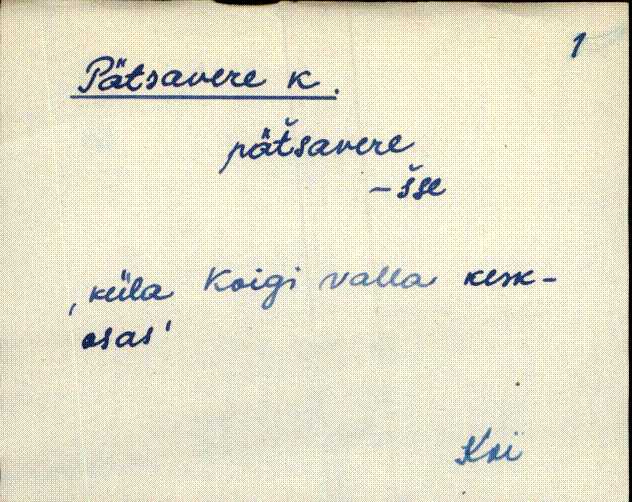 1
Pätsavere k.
pätšavere
-šse
‚küla Koigi valla kesk-
osas'
Koi